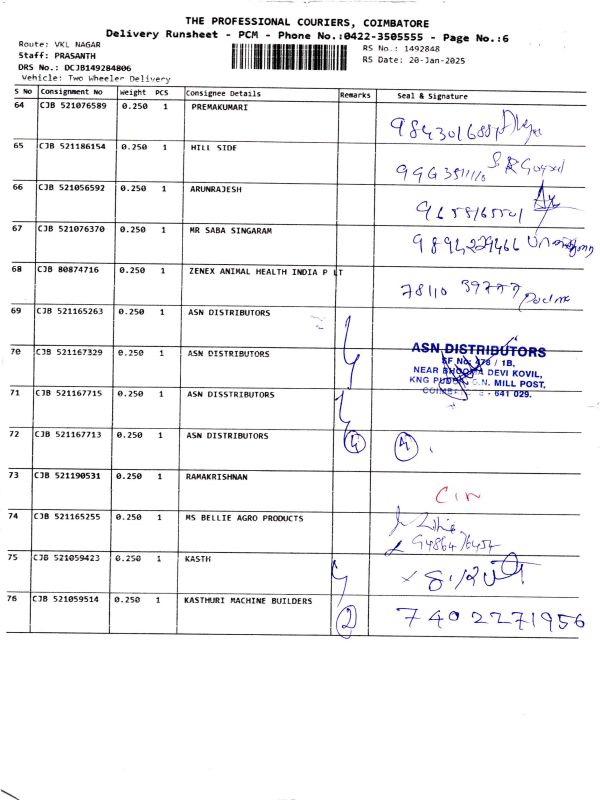 THE PROFESSIONAL COURIERS, COIMBATORE
Delivery Runsheet - PCM - Phone No.:0422-3505555 - Page No.:6
Route: VKL NAGAR
RS No.: 1492848
Staff: PRASANTH
RS Date: 20-Jan-2025
DRS No.: DCJB149284806
Vehicle: Two Wheeler Delivery
S No Consignment No Weight PCS Consignee Details Remarks Seal & Signature
64 CJB 521076589 0.250 1 PREMAKUMARI
65 CJB 521186154 0.250 1 HILL SIDE
66 CJB 521056592 0.250 1 ARUNRAJESH
67 CJB 521076370 0.250 1 MR SABA SINGARAM 9894229466
68 CJB 80874716 0.250 1 ZENEX ANIMAL HEALTH INDIA P LT
78110 39777
69 CJB 521165263 0.250 1 ASN DISTRIBUTORS
70 CJB 521167329 0.250 1 ASN DISTRIBUTORS
ASN DISTRIBUTORS
SF No: 478 / 1B,
NEAR BHOOMA DEVI KOVIL,
KNG PUDUR, G.N. MILL POST,
- 641 029.
71 CJB 521167715 0.250 1 ASN DISSTRIBUTORS
72 CJB 521167713 0.250 1 ASN DISTRIBUTORS 4 4
73 CJB 521190531 0.250 1 RAMAKRISHNAN
74 CJB 521165255 0.250 1 MS BELLIE AGRO PRODUCTS
9486476457
75 CJB 521059423 0.250 1 KASTH
76 CJB 521059514 0.250 1 KASTHURI MACHINE BUILDERS 2 7402271956